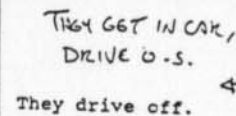 THEY GET IN CAR,
DRIVE O.S.
They drive off.